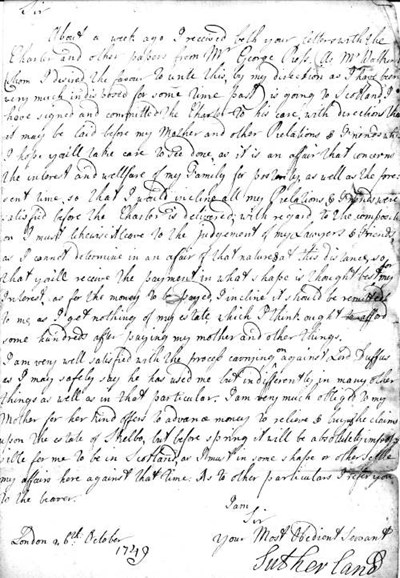 Sir
About a week ago I received both your letters with the
Charter and other papers from Mr George Ross. As Mr Walker
whom I desired the favour to write this, by my direction as I have been
very much indisposed for some time past is going to Scotland I
have signed and committed the Charter to his care, with directions that
it may be laid before my Mother and other Relations & Friends which
I hope you'll take care to see done, as it is an affair that concerns
the interest and wellfare of my Family for posterity as well as the pre=
sent time, so that I would incline all my Relations & Friends were
satisfied before the Charter is delivered, with regard to the compositi
on I must likewise leave to the judgement of my Lawyers & Friends
as I cannot determine in an affair of that nature at this distance, so
that you'll receive the payment in what shape is thought best for my
Interest, as for the money to be payed, I incline it should be remitted
to me, as I get nothing of my estate which I think ought to afford
some hundreds after paying my mother and other things.
I am very well satisfied with the process against Lord Duffus
as I may safely say he has used me but indifferently in many other
things as well as in that particular. I am very much obliged to my
Mother for her kind offers to advance money to relieve & buy the claims
upon the estate of Skelbo, but before spring it will be absolutely impos
sible for me to be in Scotland, as I must in some shape or other settle
my affairs here against that time. As to other particulars I refer you
to the bearer.
I am
Sir
London 26th October
Your Most Obedient Servant
1749
Sutherland